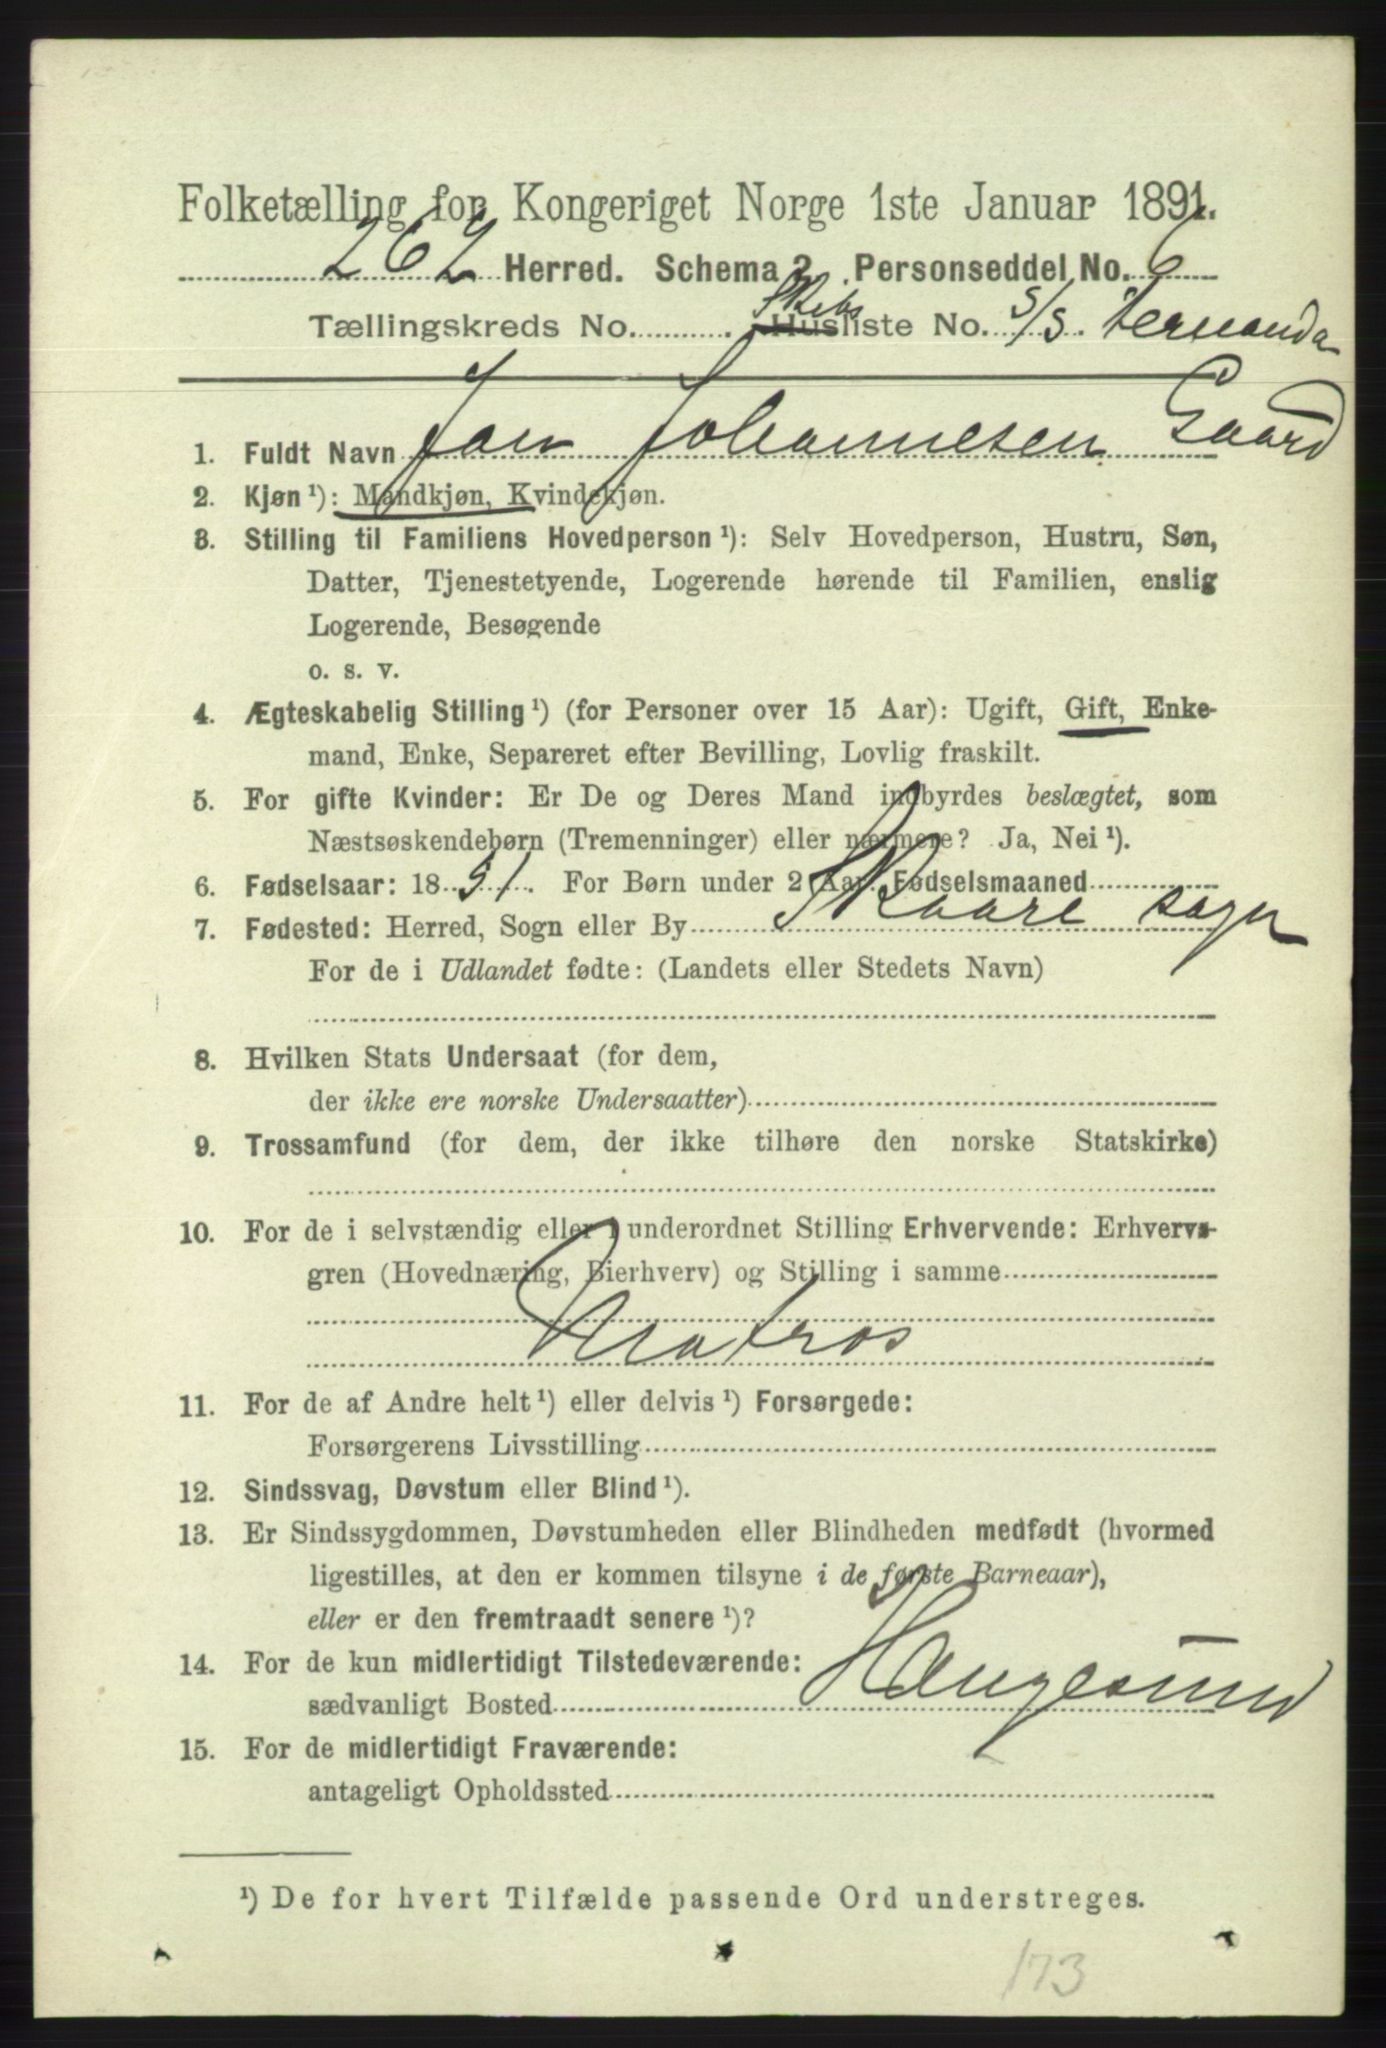 Folketælling for Kongeriget Norge 1ste Januar 1891.
262 Herred. Schema 2. Personseddel No. 6
Tællingskreds No. ........ . Skibs Husliste No. S/S.
1. Fuldt Navn Jan Johannesen Gaard
2. Kjøn ¹): Mandkjøn, Kvindekjøn.
3. Stilling til Familiens Hovedperson ¹): Selv Hovedperson, Hustru, Søn,
Datter, Tjenestetyende, Logerende hørende til Familien, enslig
Logerende, Besøgende
o. s. v.
4. Ægteskabelig Stilling ¹) (for Personer over 15 Aar): Ugift, Gift, Enke-
mand, Enke, Separeret efter Bevilling, Lovlig fraskilt.
5. For gifte Kvinder: Er De og Deres Mand indbyrdes beslægtet, som
Næstsøskendebørn (Tremenninger) eller nærmere? Ja, Nei ¹).
6. Fødselsaar: 18 51. For Børn under 2 Aar: Fødselsmaaned
7. Fødested: Herred, Sogn eller By Skaare sogn
For de i Udlandet fødte: (Landets eller Stedets Navn)
8. Hvilken Stats Undersaat (for dem,
der ikke ere norske Undersaatter)
9. Trossamfund (for dem, der ikke tilhøre den norske Statskirke)
10. For de i selvstændig eller i underordnet Stilling Erhvervende: Erhvervs-
gren (Hovednæring, Bierhverv) og Stilling i samme
Matros
11. For de af Andre helt ¹) eller delvis ¹) Forsørgede:
Forsørgerens Livsstilling
12. Sindssvag, Døvstum eller Blind ¹).
13. Er Sindssygdommen, Døvstumheden eller Blindheden medfødt (hvormed
ligestilles, at den er kommen tilsyne i de første Barneaar),
eller er den fremtraadt senere ¹)?
14. For de kun midlertidigt Tilstedeværende:
sædvanligt Bosted Haugesund
15. For de midlertidigt Fraværende:
antageligt Opholdssted
¹) De for hvert Tilfælde passende Ord understreges.
173